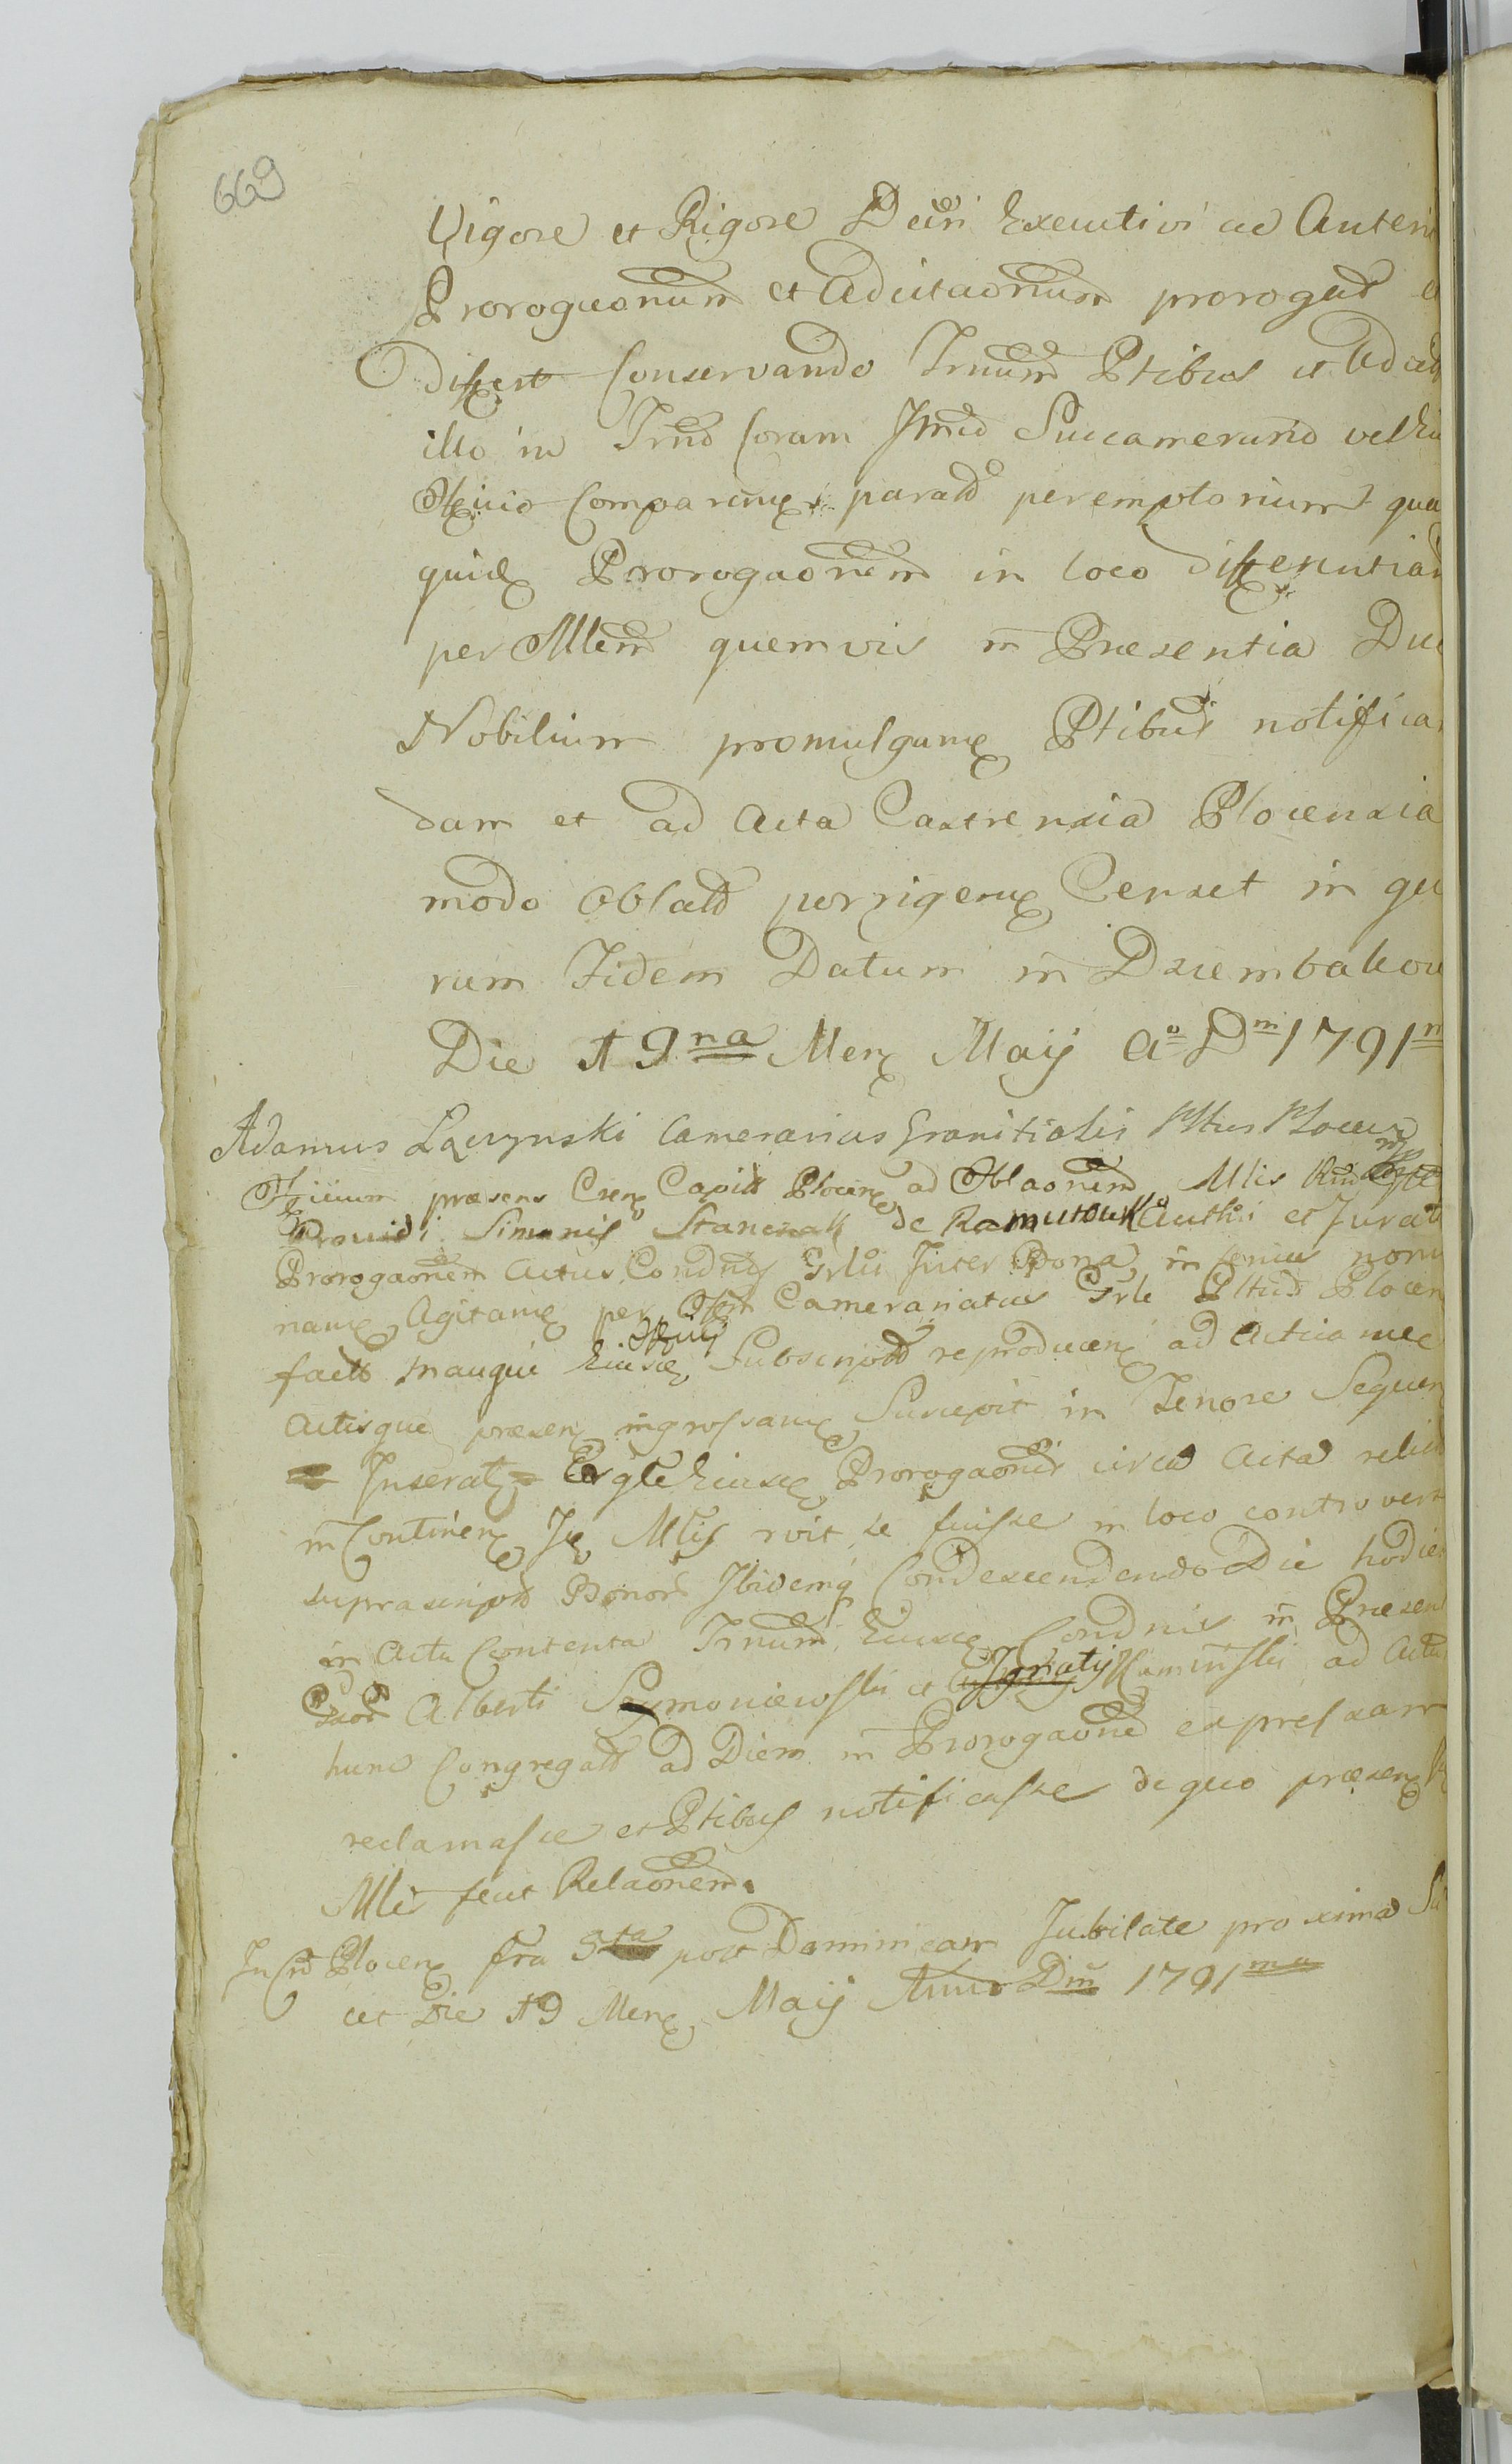 669
Vigore et Rigore Decri Executivi ac Anteri
Prorogaonum et Adcitaonum prorogat
differt Conservando Trnum Ptibus et Adcit
illo in Trno Coram Jmco Succamerario vel
Offcio Comparenx parato peremptorium qua
quidx Prorogaonem in loco differentiar
per Mlem quemvis in Præsentia Du
Nobilium promulganx Ptibus notifica
dam et ad Acta Castrensia Plocensia
modo Oblato porrigenx Censet in qu
rum Fidem Datum in Dziembakow
Die 19na Menx Maij Ao Dni 1791
Adamus Łączynski Camerarius Granitialis Pltus Plocen
Offcium præsens Crenx Capit Plocenx ad Oblaonem Mlis Rndi
Providi Simonis Stanczak de Ramutowk Autthi et Jurat
Prorogaonem Actus Condnis Grlis Inter Bona in
nanx Agitanx per Offm Camerariatus Grle Pltus Plocen
facto manque Eiusdx Offcij Subscripto reproducenx ad Acticanx
Actisque præsenx ingrossanx Suscepit in Tenore Sequen
= Inserat = Orgle Eiusdx Prorogaonis circa Acta relict
in Continenx Jx Mlis rvit se fuisse in loco controvers
suprascripto Bonor Ibidemq Condescendendo Die hodie
in Actu Contenta Trnum Eiusdx Condnis in Præsen
Gsor Alberti Szymoniewski et Ignatij Kaminski ad Actu
hunc Congregato ad Diem in Prorogaone expressam
reclamasse et Ptibus notificasse de quo præsenx
Mlis fecit Relaonem.
In Cro Plocenx fra 5ta post Dominicam Jubilate proxima
aet Die 19 Menx Maij Anno Dni 1791ma